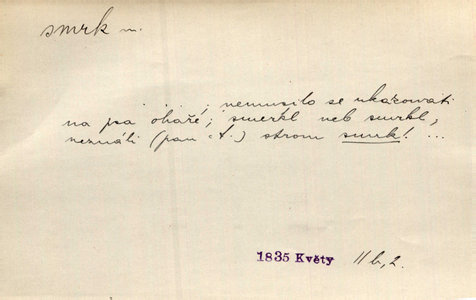 smrk m.
. . . , nemusilo se ukazovati
na psa ohaře; smerkl neb smrkl,
neználi (pan A.) strom smrk! ...
1835 Květy 11b,2.